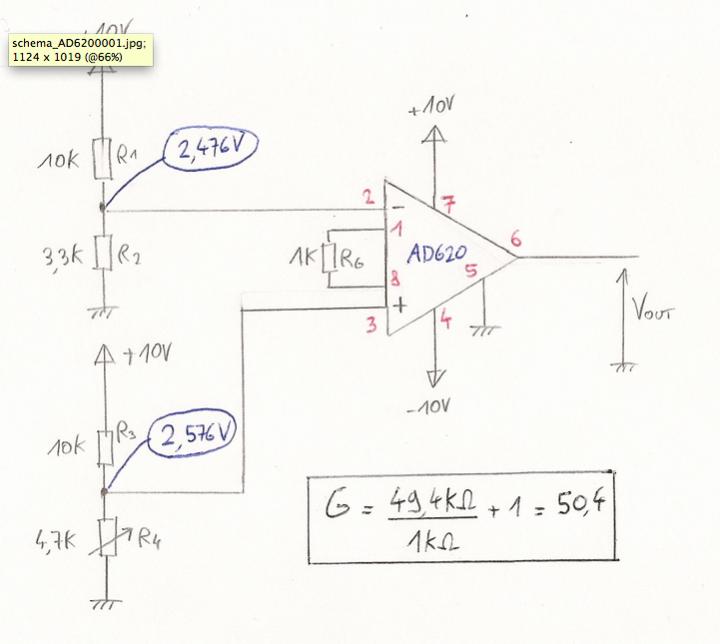 +10V
schema_AD6200001.jpg;
1124 x 1019 (@66%)
10K R1
2,476V
3,3K R2
+10V
2
−
7
1
1K RG
AD620
6
8
5
+
3
4
VOUT
-10V
+10V
10K R3
2,576V
4,7K R4
G = 49,4KΩ / 1KΩ + 1 = 50,4